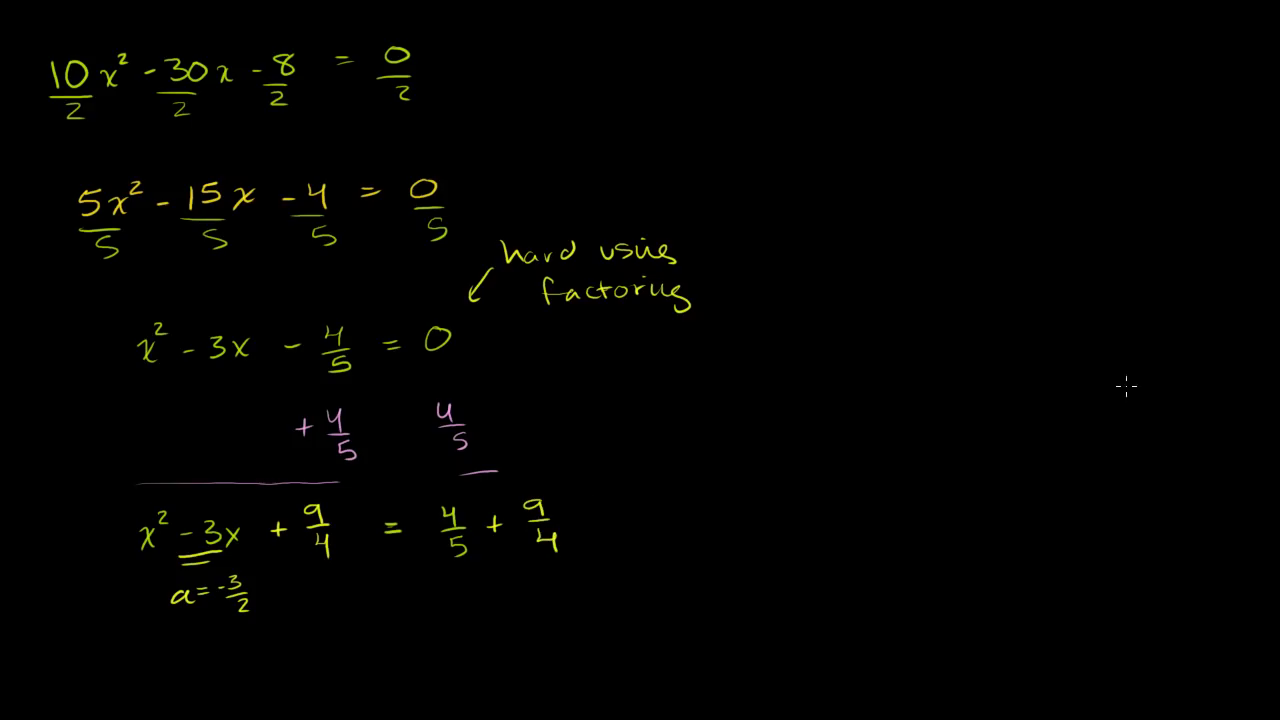 10/2 x² - 30x/2 - 8/2 = 0/2
5x²/5 - 15x/5 - 4/5 = 0/5
hard using
factoring
x² - 3x - 4/5 = 0
+ 4/5 4/5
x² - 3x + 9/4 = 4/5 + 9/4
a = -3/2